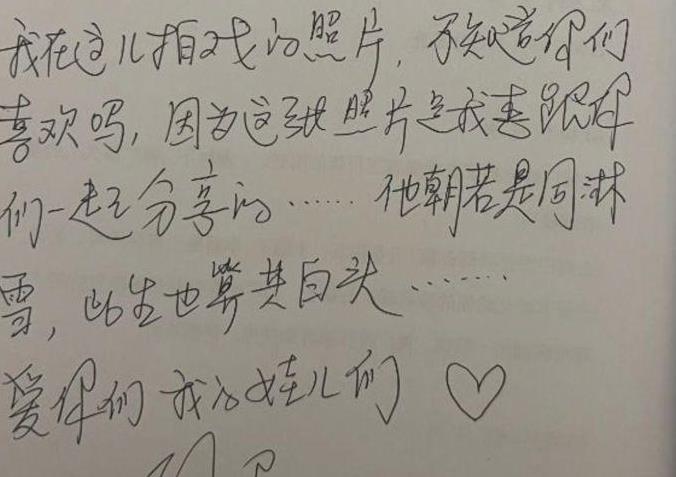 我在这儿拍戏的照片，不知道你们
喜欢吗，因为这张照片是我喜跟你
们一起分享的……他朝若是同淋
雪，此生也算共白头……
爱你们 我的娃儿们 ♡